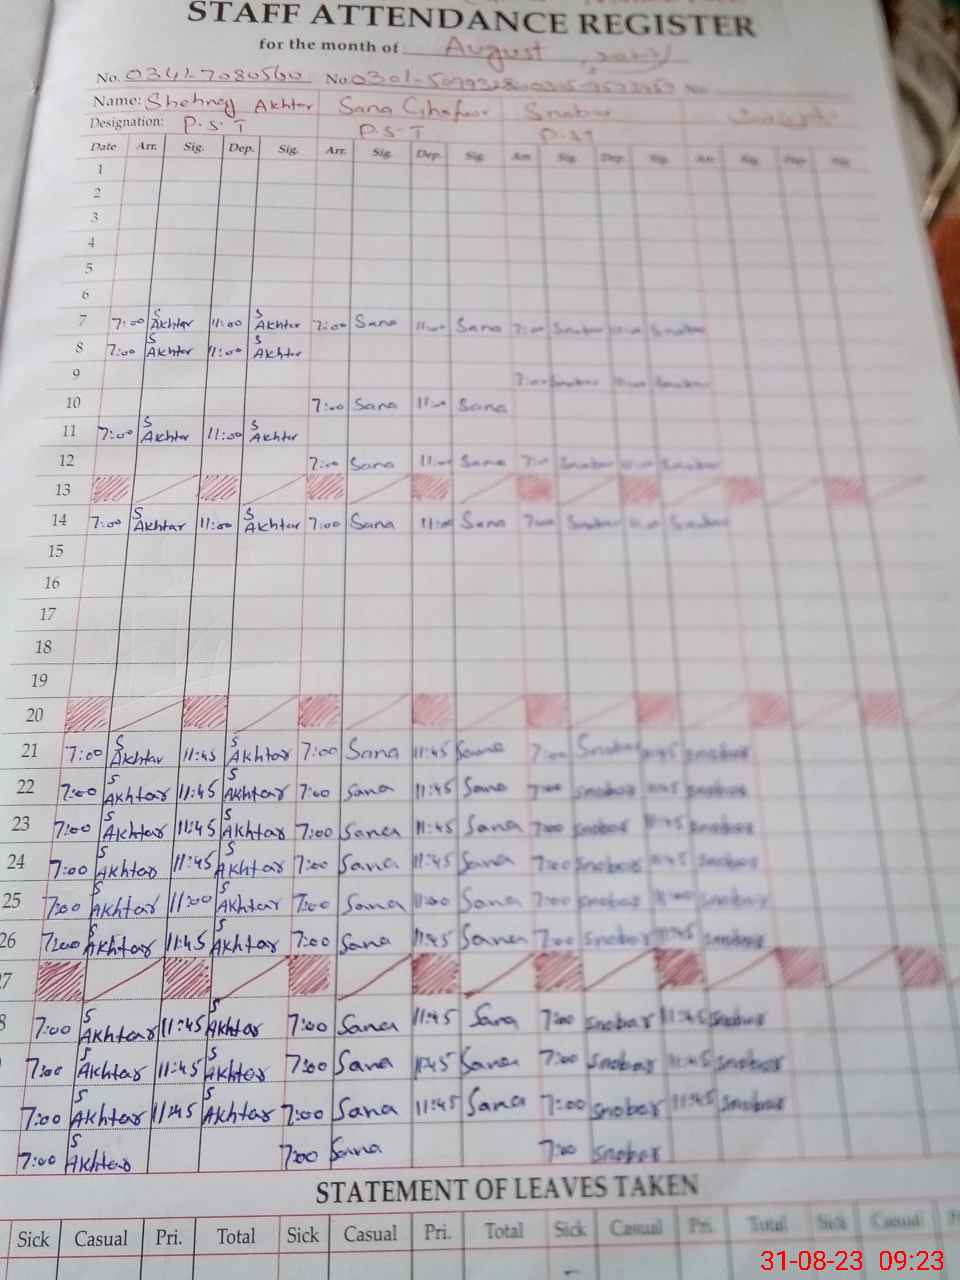 STAFF ATTENDANCE REGISTER
for the month of August
No. 0341-7080560 No.
Name: Shehnaj Akhtar Sana Ghafoor Snobar
Designation: P.S.T P.S.T P.S.T
Date Arr. Sig. Dep. Sig. Arr. Sig. Dep. Sig. Arr. Sig. Dep. Sig. Arr. Sig. Dep. Sig.
1
2
3
4
5
6
7 7:00 S Akhtar 11:00 S Akhtar 7:00 Sana 11:00 Sana 7:00 Snobar 11:00 Snobar
8 7:00 S Akhtar 11:00 S Akhtar
9 7:00 Snobar 11:00 Snobar
10 7:00 Sana 11:00 Sana
11 7:00 S Akhtar 11:00 S Akhtar
12 7:00 Sana 11:00 Sana 7:00 Snobar 11:00 Snobar
13
14 7:00 S Akhtar 11:00 S Akhtar 7:00 Sana 11:00 Sana 7:00 Snobar 11:00 Snobar
15
16
17
18
19
20
21 7:00 S Akhtar 11:45 S Akhtar 7:00 Sana 11:45 Sana 7:00 Snobar 11:45 snobar
22 7:00 S Akhtar 11:45 S Akhtar 7:00 Sana 11:45 Sana 7:00 snobar 11:45 snobar
23 7:00 S Akhtar 11:45 S Akhtar 7:00 Sana 11:45 Sana 7:00 snobar 11:45 snobar
24 7:00 S Akhtar 11:45 S Akhtar 7:00 Sana 11:45 Sana 7:00 snobar 11:45 snobar
25 7:00 S Akhtar 11:00 S Akhtar 7:00 Sana 11:00 Sana 7:00 snobar 11:00 snobar
26 7:00 S Akhtar 11:45 S Akhtar 7:00 Sana 11:45 Sana 7:00 snobar 11:45 snobar
7
8 7:00 S Akhtar 11:45 S Akhtar 7:00 Sana 11:45 Sana 7:00 snobar 11:45 snobar
7:00 S Akhtar 11:45 S Akhtar 7:00 Sana 11:45 Sana 7:00 snobar 11:45 snobar
7:00 S Akhtar 11:45 S Akhtar 7:00 Sana 11:45 Sana 7:00 snobar 11:45 snobar
7:00 S Akhtar 7:00 Sana 7:00 snobar
STATEMENT OF LEAVES TAKEN
Sick Casual Pri. Total Sick Casual Pri. Total Sick Casual Pri. Total Sick Casual
31-08-23 09:23